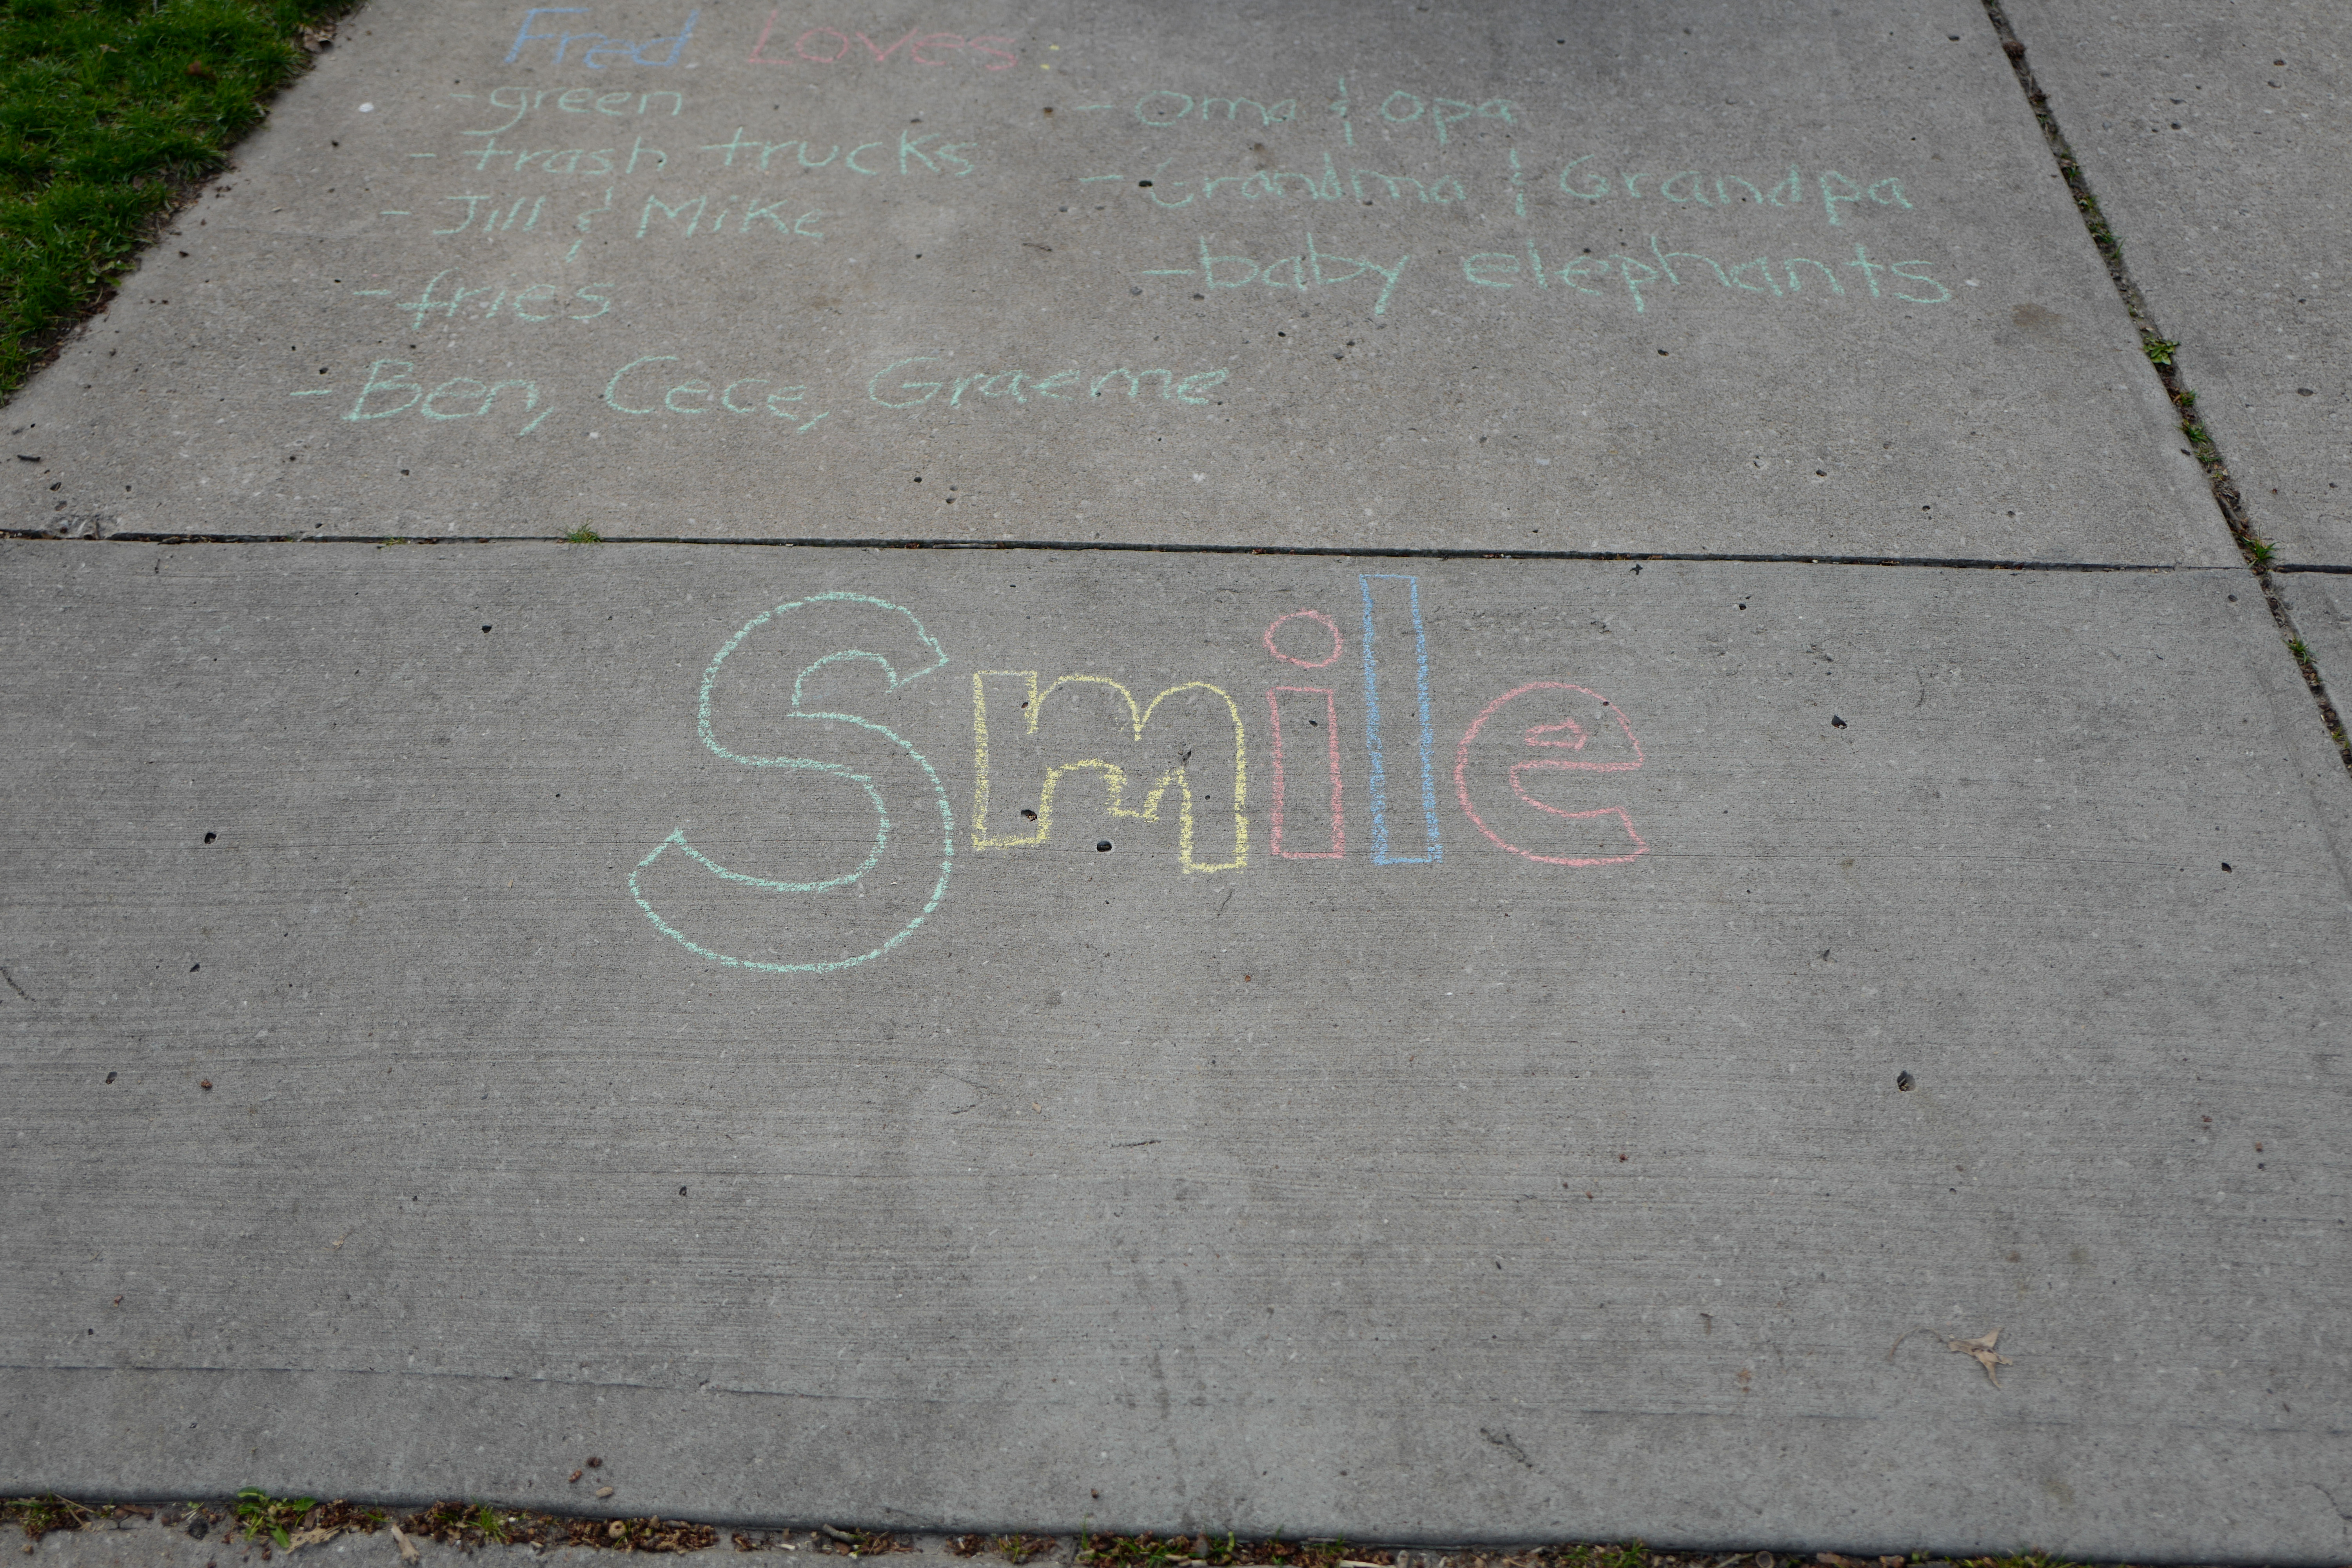 Fred Loves:
- green
- trash trucks
- Jill & Mike
- fries
- Ben, Cece, Graeme
- Oma & Opa
- Grandma & Grandpa
- baby elephants
Smile